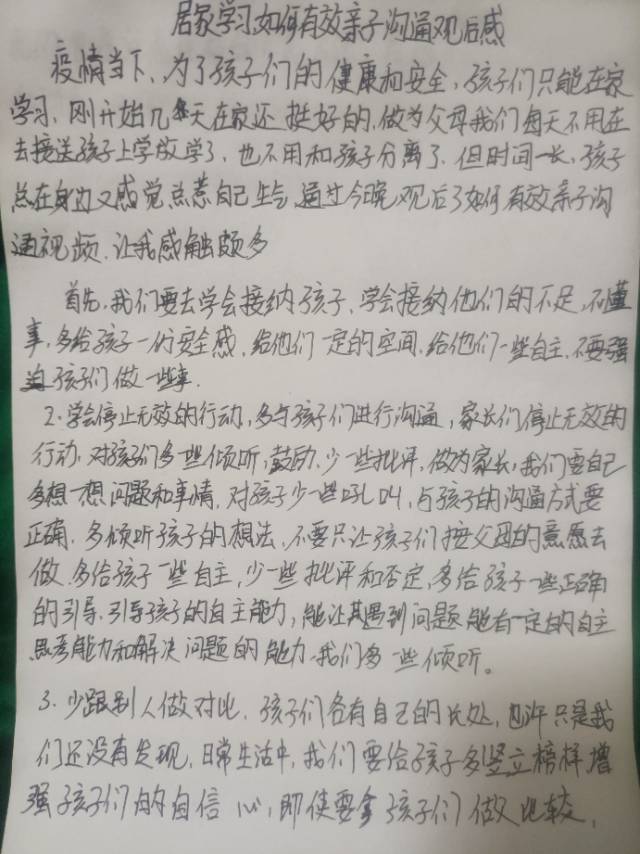 居家学习如何有效亲子沟通观后感
疫情当下、为了孩子们的健康和安全,孩子们只能在家
学习、刚开始几天在家还挺好的,做为父母我们每天不用在
去接送孩子上学放学了、也不用和孩子分离了、但时间一长、孩子
总在身边又感觉总惹自己生气、通过今晚观后了如何有效亲子沟
通视频、让我感触颇多
首先、我们要去学会接纳孩子、学会接纳他们的不足,不懂
事、多给孩子一份安全感、给他们一定的空间、给他们一些自主、不要强
迫孩子们做一些事.
2.学会停止无效的行动,多与孩子们进行沟通,家长们停止无效的
行动、对孩子们多一些倾听,鼓励、少一些批评,做为家长,我们要自己
多想一想问题和事情、对孩子少一些吼叫、与孩子的沟通方式要
正确、多倾听孩子的想法、不要只让孩子们按父母的意愿去
做、多给孩子一些自主,少一些批评和否定、多给孩子一些正确
的引导、引导孩子的自主能力,能让其遇到问题能有一定的自主
思考能力和解决问题的能力、我们多一些倾听。
3、少跟别人做对比、孩子们各有自己的长处,也许只是我
们还没有发现、日常生活中,我们要给孩子多竖立榜样增
强孩子们的自信心,即使要拿孩子们做比较,